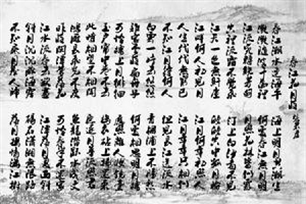 春江花月夜
春江潮水連海平 海上明月共潮生
灩灩隨波千萬里 何處春江無月明
江流宛轉繞芳甸 月照花林皆似霰
空里流霜不覺飛 汀上白沙看不見
江天一色無纖塵 皎皎空中孤月輪
江畔何人初見月 江月何年初照人
人生代代無窮已 江月年年只相似
不知江月待何人 但見長江送流水
白雲一片去悠悠 青楓浦上不勝愁
誰家今夜扁舟子 何處相思明月樓
可憐樓上月徘徊 應照離人妝鏡臺
玉戶簾中卷不去 擣衣砧上拂還來
此時相望不相聞 願逐月華流照君
鴻雁長飛光不度 魚龍潛躍水成文
昨夜閑潭夢落花 可憐春半不還家
江水流春去欲盡 江潭落月復西斜
斜月沉沉藏海霧 碣石瀟湘無限路
不知乘月幾人歸 落月搖情滿江樹